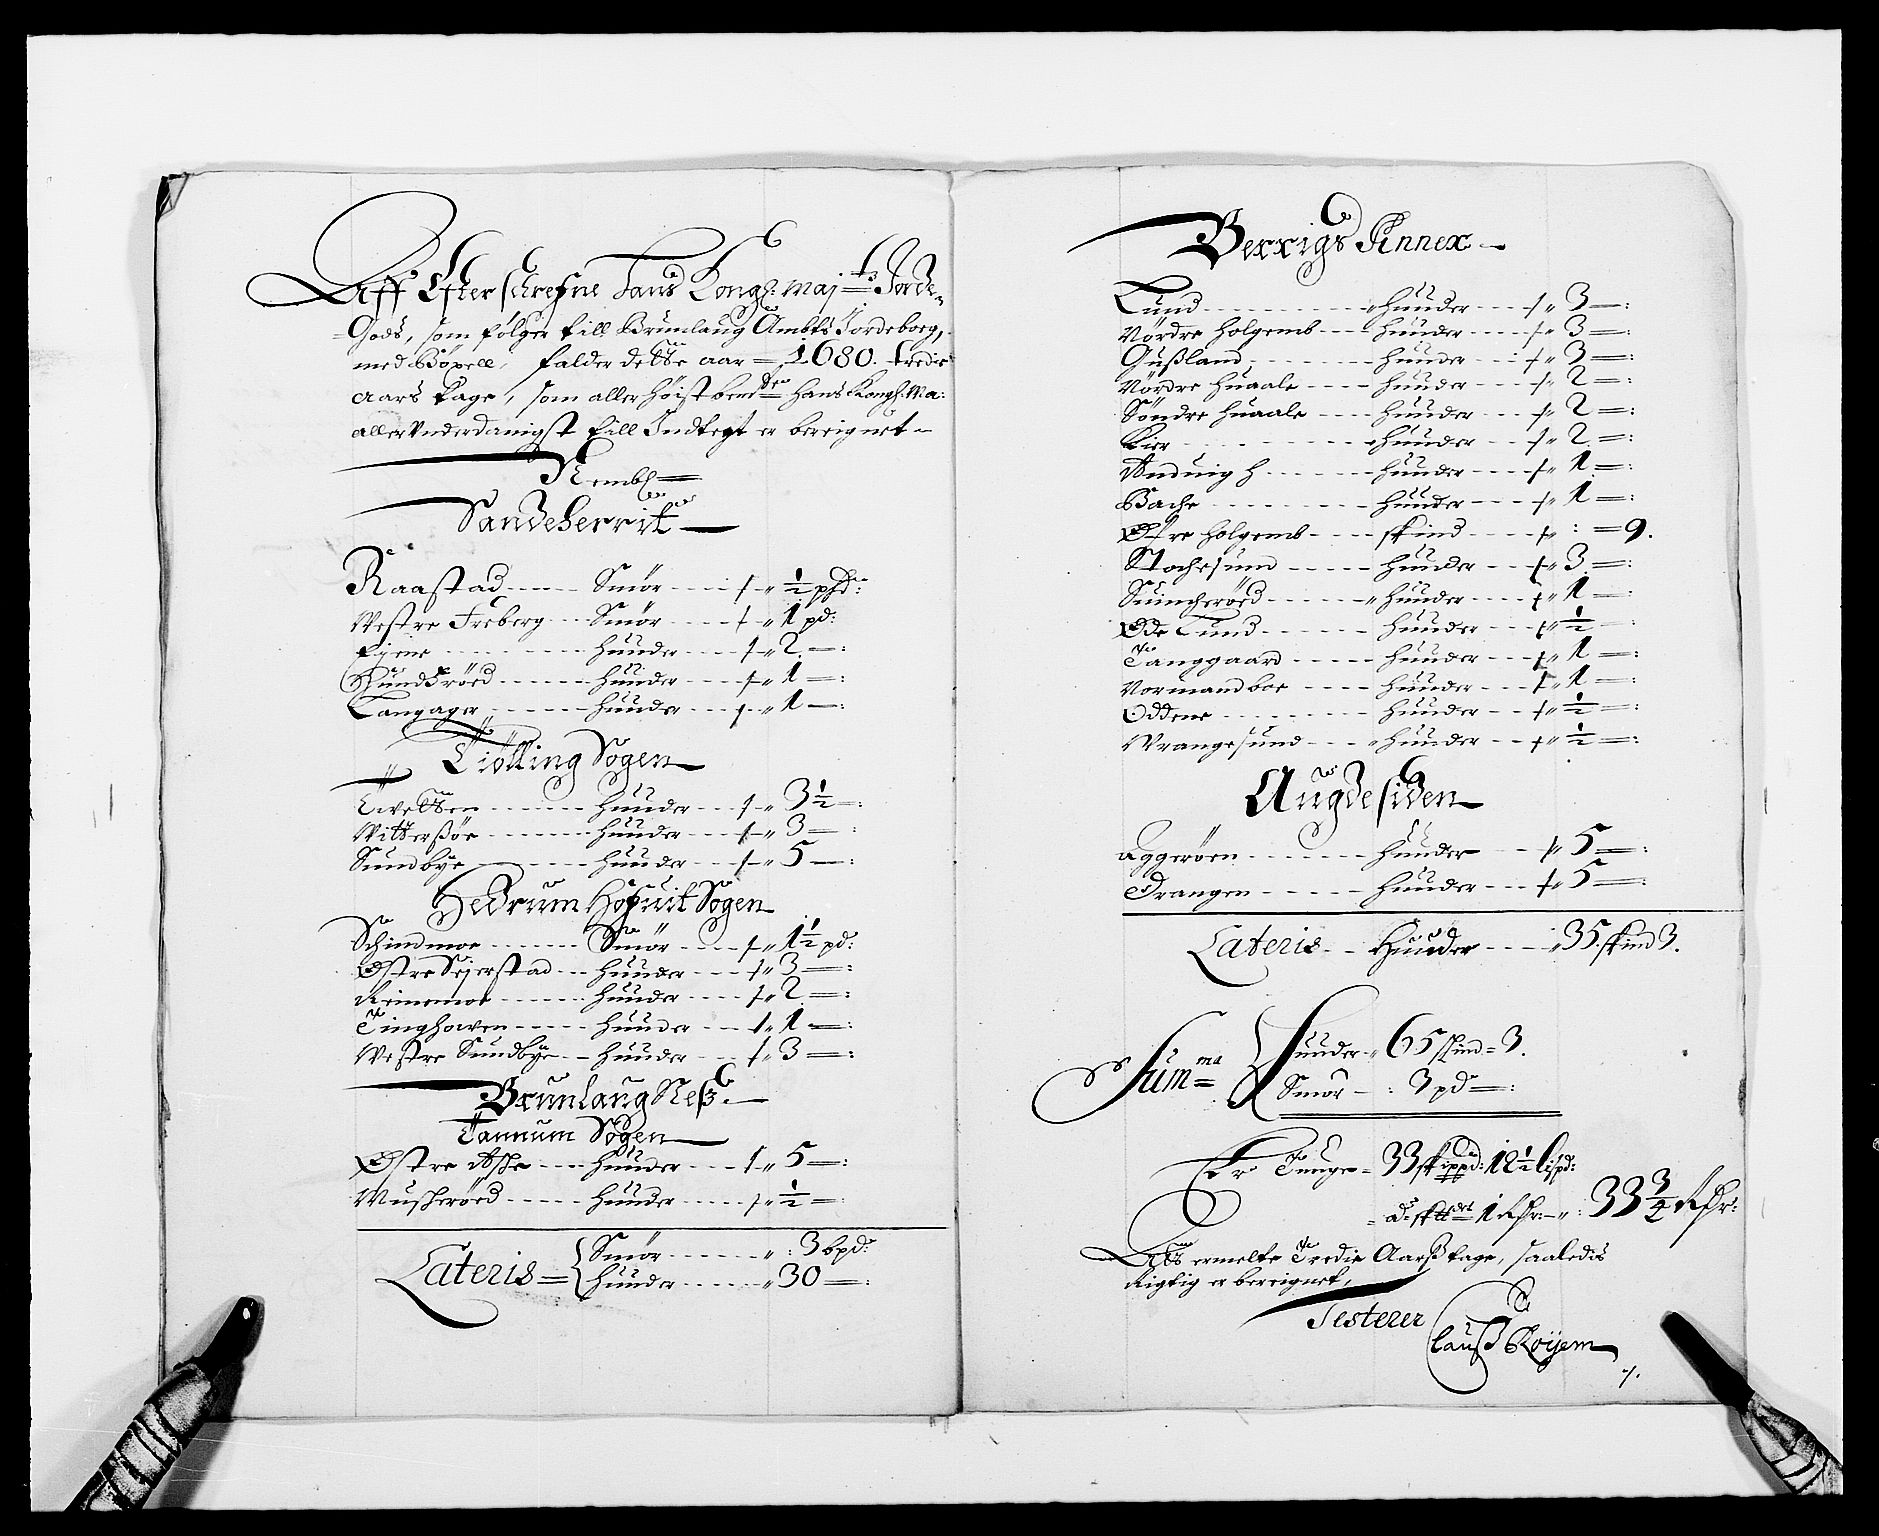 Aff Efterschrefne Hans Kongl: Maj:ts Jorde-
Gods, som følger till Brunlaug Ambts Jordebog,
med Bøxell, falder dette aar = 1680. tredie
aars tage, som allerhøistbem:te Hans Kongl: Ma:
allerunderdanigst till Indtegt er beregnet
Nembl:
Sandeherrit
Raastad ---- Smør ---- " ½ pd:
Westre Freberg --- Smør ---- " 1 pd:
---- Huuder ---- " 2 =:
Hundkrøed ---- Huuder ---- " 1 =:
Langager ---- Huuder ---- " 1 =:
Tiølling Sogen
Tvetten ---- Huuder ---- " 3½ =:
Wittersøe ---- Huuder ---- " 3 =:
Sundbye ---- Huuder ---- " 5 =:
Hedrum Hofuit Sogen
Schindmoe ---- Smør ---- " 1½ pd:
Østre Sejerstad --- Huuder ---- " 3 =:
Reinemoe ---- Huuder ---- " 2 =:
Tinghowen ---- Huuder ---- " 1 =:
Westre Sundbye -- Huuder ---- " 3 =:
Brunlaug Neß.
Tannum Sogen
Østre Aske ---- Huuder ---- " 5 =:
Muskerøed ---- Huuder ---- " ½ =:
Lateris = Smør ---- " : 3 bpd:
Huuder ---- " 30 =:
Berrigs Annex
Lund ---- Huuder ---- " 3 =:
Nordre Holgemb --- Huuder ---- " 3 =:
Gußland ---- Huuder ---- " 3 =:
Nørdre Huaale ---- Huuder ---- " 2 =:
Søndre Huaale ---- Huuder ---- " 2 =:
Kier ---- Huuder ---- " 2 =:
Huuder ---- " 1 =:
Bache ---- Huuder ---- " 1 =:
Øfre Holgemb ---- skind ---- : = 9.
Stochesund ---- Huuder ---- " 3 =:
Huuder ---- " 1 =:
Øde Lund ---- Huuder ---- " ½ =:
Tanggaard ---- Huuder ---- " 1 =:
Normandboe ---- Huuder ---- " 1 =:
Oddene ---- Huuder ---- " ½ =:
Wrangesund ---- Huuder ---- " ½ =:
Augdesiden
Aggerøen ---- Huuder ---- " 5 =:
Orangen ---- Huuder ---- " 5 =:
Lateris -- Huuder ---- " 35. skind 3.
Summa = Huuder " 65 skind = 3.
Smør - : 3 pd =:
Er Tunge = 33 skippd: 12½ lispd:
1 Rdr: " : 33 ¾ Rdr:
ermelte Tredie Aarß tage, saaledis
Rigtig er beregnet,
Testerer
Clauß Røyem